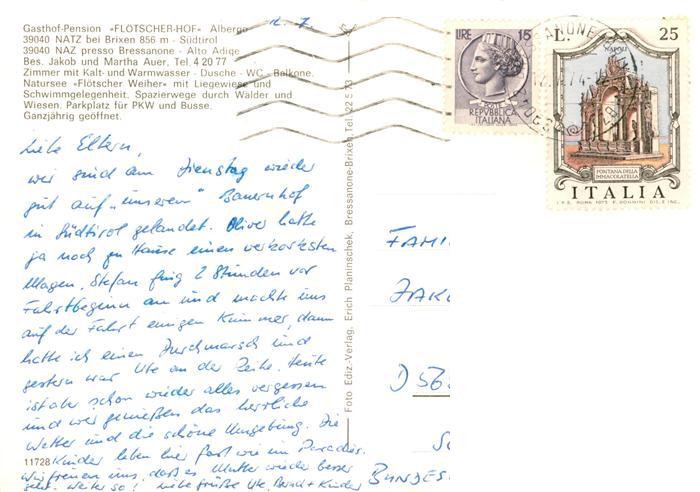 Gasthof-Pension «FLÖTSCHER-HOF» Albergo
39040 NATZ bei Brixen 856 m - Südtirol
39040 NAZ presso Bressanone - Alto Adige
Bes. Jakob und Martha Auer, Tel. 4 20 77
Zimmer mit Kalt- und Warmwasser - Dusche - WC - Balkone.
Natursee «Flötscher Weiher» mit Liegewiese und
Schwimmgelegenheit. Spazierwege durch Wälder und
Wiesen. Parkplatz für PKW und Busse.
Ganzjährig geöffnet.
12. 7.
LIRE 15
POSTE
REPVBBLICA
ITALIANA
L. 25
NAPOLI
FONTANA DELLA
IMMACOLATELLA
ITALIA
Liebe Eltern,
wir sind am Dienstag wieder
gut auf "unserem" Bauernhof
in Südtirol gelandet. Oliver hatte
ja noch zu Hause einen verkorksten
Magen, Stefan fing 2 Stunden vor
Fahrtbeginn an und machte uns
auf der Fahrt einigen Kummer, dann
hatte ich einen Durchmarsch und
gestern war Ute an der Reihe. Heute
ist aber schon wieder alles vergessen
und wir genießen das herrliche
Wetter und die schöne Umgebung. Die
Kinder leben hier fast wie im Paradies.
Wir freuen uns, daß es Mutter wieder besser
geht. Weiter so! Liebe Grüße Ute, Bernd + Kinder
11728
Foto Ediz.-Verlag. Erich Planinschek, Bressanone-Brixen, Tel. 22 5 73
FAMI
JAK
D 56
BUNDES